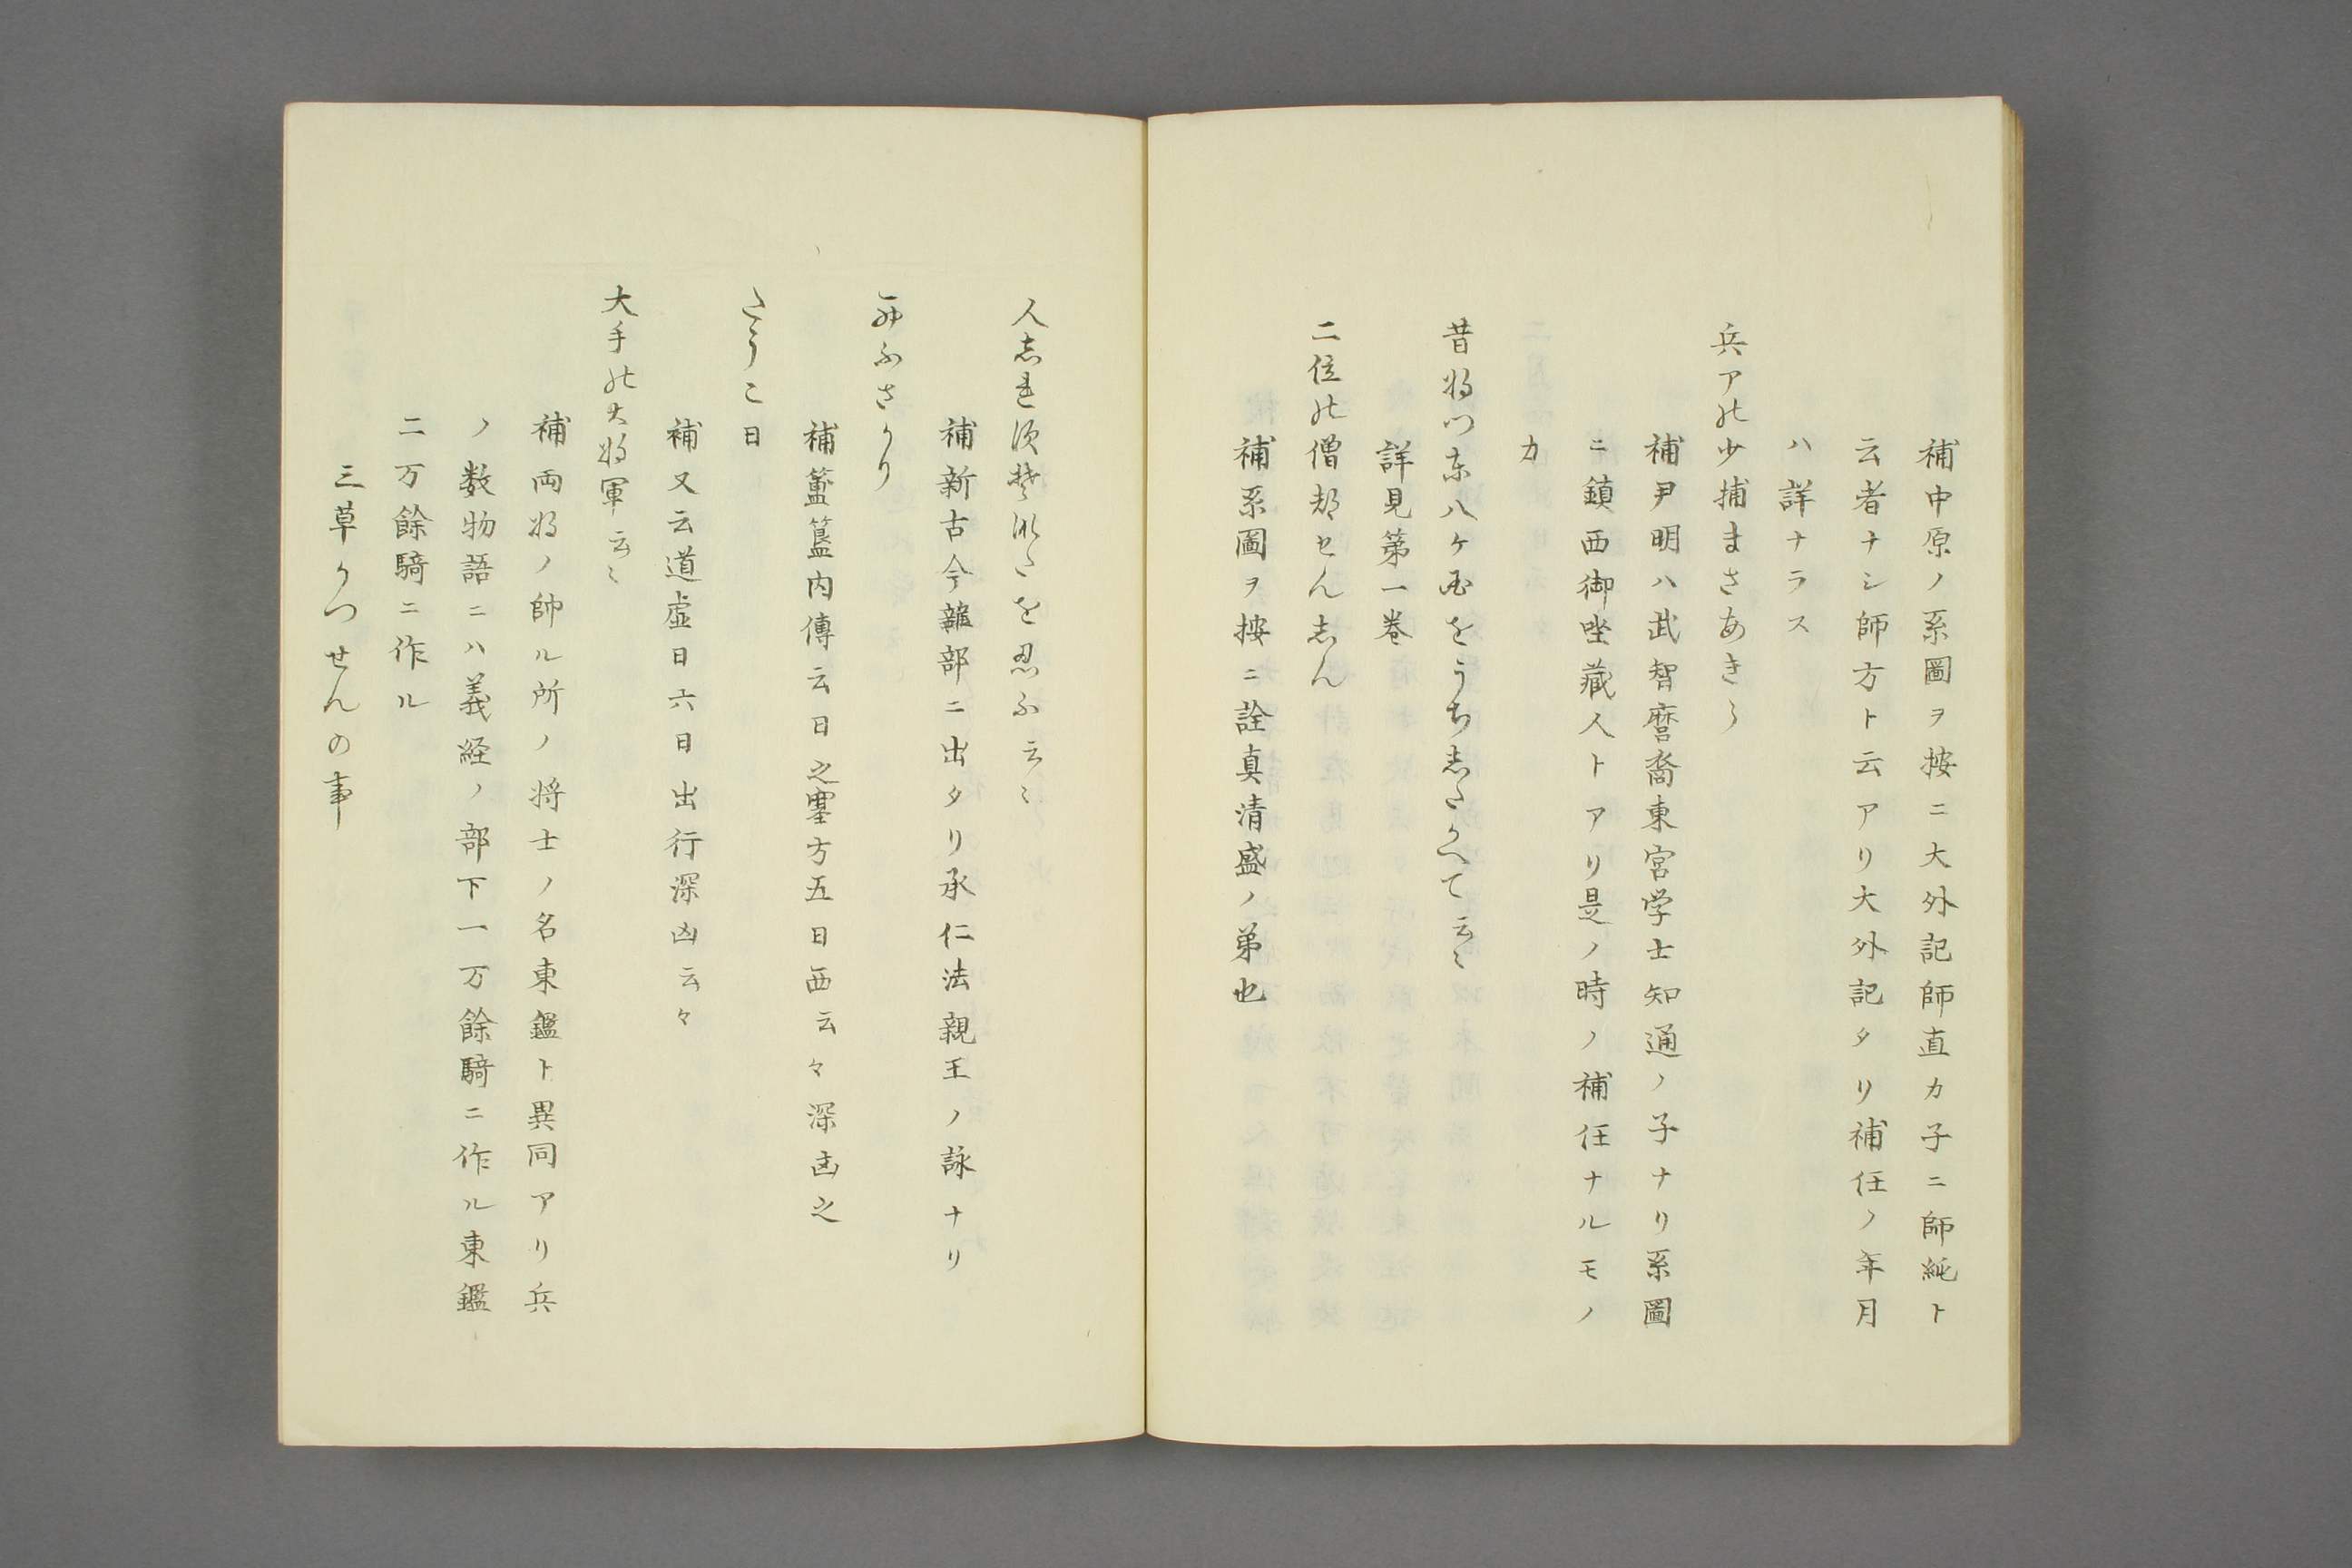 補中原ノ系圖ヲ按ニ大外記師直カ子ニ師純ト
云者ナシ師方ト云アリ大外記タリ補任ノ年月
ハ詳ナラス
兵ア乃少捕まさあきら
補尹明ハ武智麿裔東宮学士知通ノ子ナリ系圖
ニ鎮西御坐藏人トアリ是ノ時ノ補任ナルモノ
カ
昔将門東八ケ国をうちしたかへて云〻
詳見第一巻
二位乃僧都せんしん
補系圖ヲ按ニ詮真清盛ノ弟也
人しれすそなたを忍ふ云〻
補新古今雜部ニ出タリ承仁法親王ノ詠ナリ
西ふさかり
補簠簋内傳云日之塞方五日西云々深凶之
たうこ日
補又云道虚日六日出行深凶云々
大手乃大将軍云〻
補両将ノ帥ル所ノ将士ノ名東鑑ト異同アリ兵
ノ数物語ニハ義経ノ部下一万餘騎ニ作ル東鑑
二万餘騎ニ作ル
三草かつせんの事